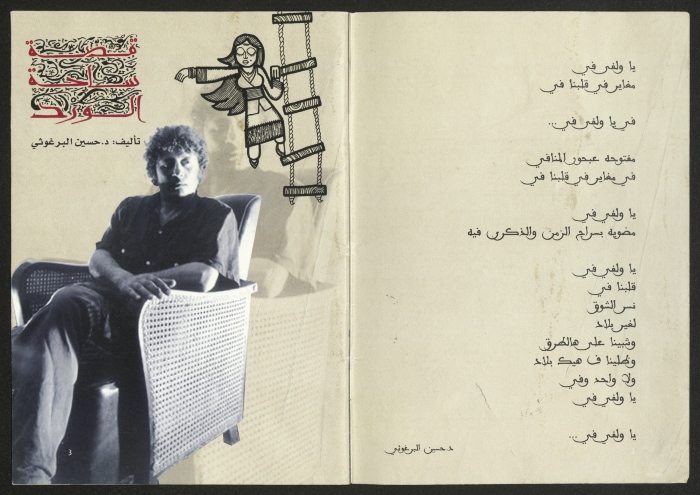 قصة
ساحة
الورد
تأليف: د.حسين البرغوثي
3
يا ولفي في
مغاير في قلبنا في
في يا ولفي في..
مفتوحه عبحور المنافي
في مغاير في قلبنا في
يا ولفي في
مضويه بسراج الزمن والذكرى فيه
يا ولفي في
قلبنا في
نسر الشوق
لغير بلاد
وشبينا على هالطرق
وظلينا ف هيك بلاد
ولا واحد وفي
يا ولفي في
يا ولفي في..
د.حسين البرغوثي